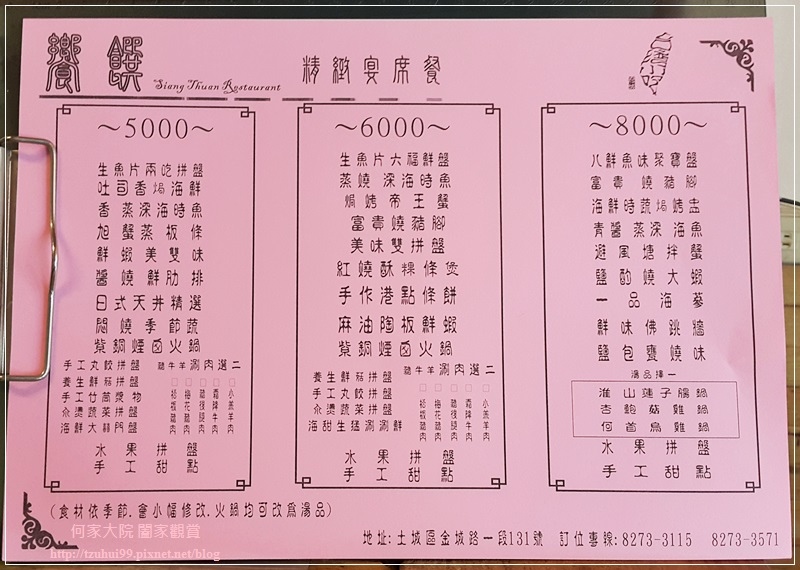 饗饌
Siang Thuan Restaurant
精緻宴席餐
台灣小吃
～5000～
生魚片兩吃拼盤
吐司香焗海鮮
香蒸深海時魚
旭蟹蒸板條
鮮蝦美雙味
醬燒鮮肋排
日式天丼精選
悶燒季節蔬
紫銅煙囪火鍋
手工丸餃拼盤
養生鮮菇拼盤
手工竹筒漿物
汆燙蔬菜拼盤
海鮮大赫門盤
豬牛羊涮肉選二
□松板豬肉
□梅花豬肉
□豬後腿肉
□霜降牛肉
□小羔羊肉
水果拼盤
手工甜點
～6000～
生魚片大福鮮盤
蒸燒深海時魚
焗烤帝王蟹
富貴燒豬腳
美味雙拼盤
紅燒酥粿條煲
手作港點條餅
麻油陶板鮮蝦
紫銅煙囪火鍋
養生鮮菇拼盤
手工丸餃拼盤
汆燙蔬菜拼盤
海甜生猛涮涮鮮
豬牛羊涮肉選二
□松板豬肉
□梅花豬肉
□豬後腿肉
□霜降牛肉
□小羔羊肉
水果拼盤
手工甜點
～8000～
八鮮魚味聚寶盤
富貴燒豬腳
海鮮時蔬焗烤盅
青醬蒸深海魚
避風塘拌蟹
鹽酌燒大蝦
一品海蔘
鮮味佛跳牆
鹽包甕燒味
湯品擇一
淮山蓮子鴿鍋
杏鮑菇雞鍋
何首烏雞鍋
水果拼盤
手工甜點
(食材依季節.會小幅修改.火鍋均可改為湯品)
地址:土城區金城路一段131號 訂位專線:8273-3115 8273-3571
何家大院 闔家觀賞
http://tzuhui99.pixnet.net/blog